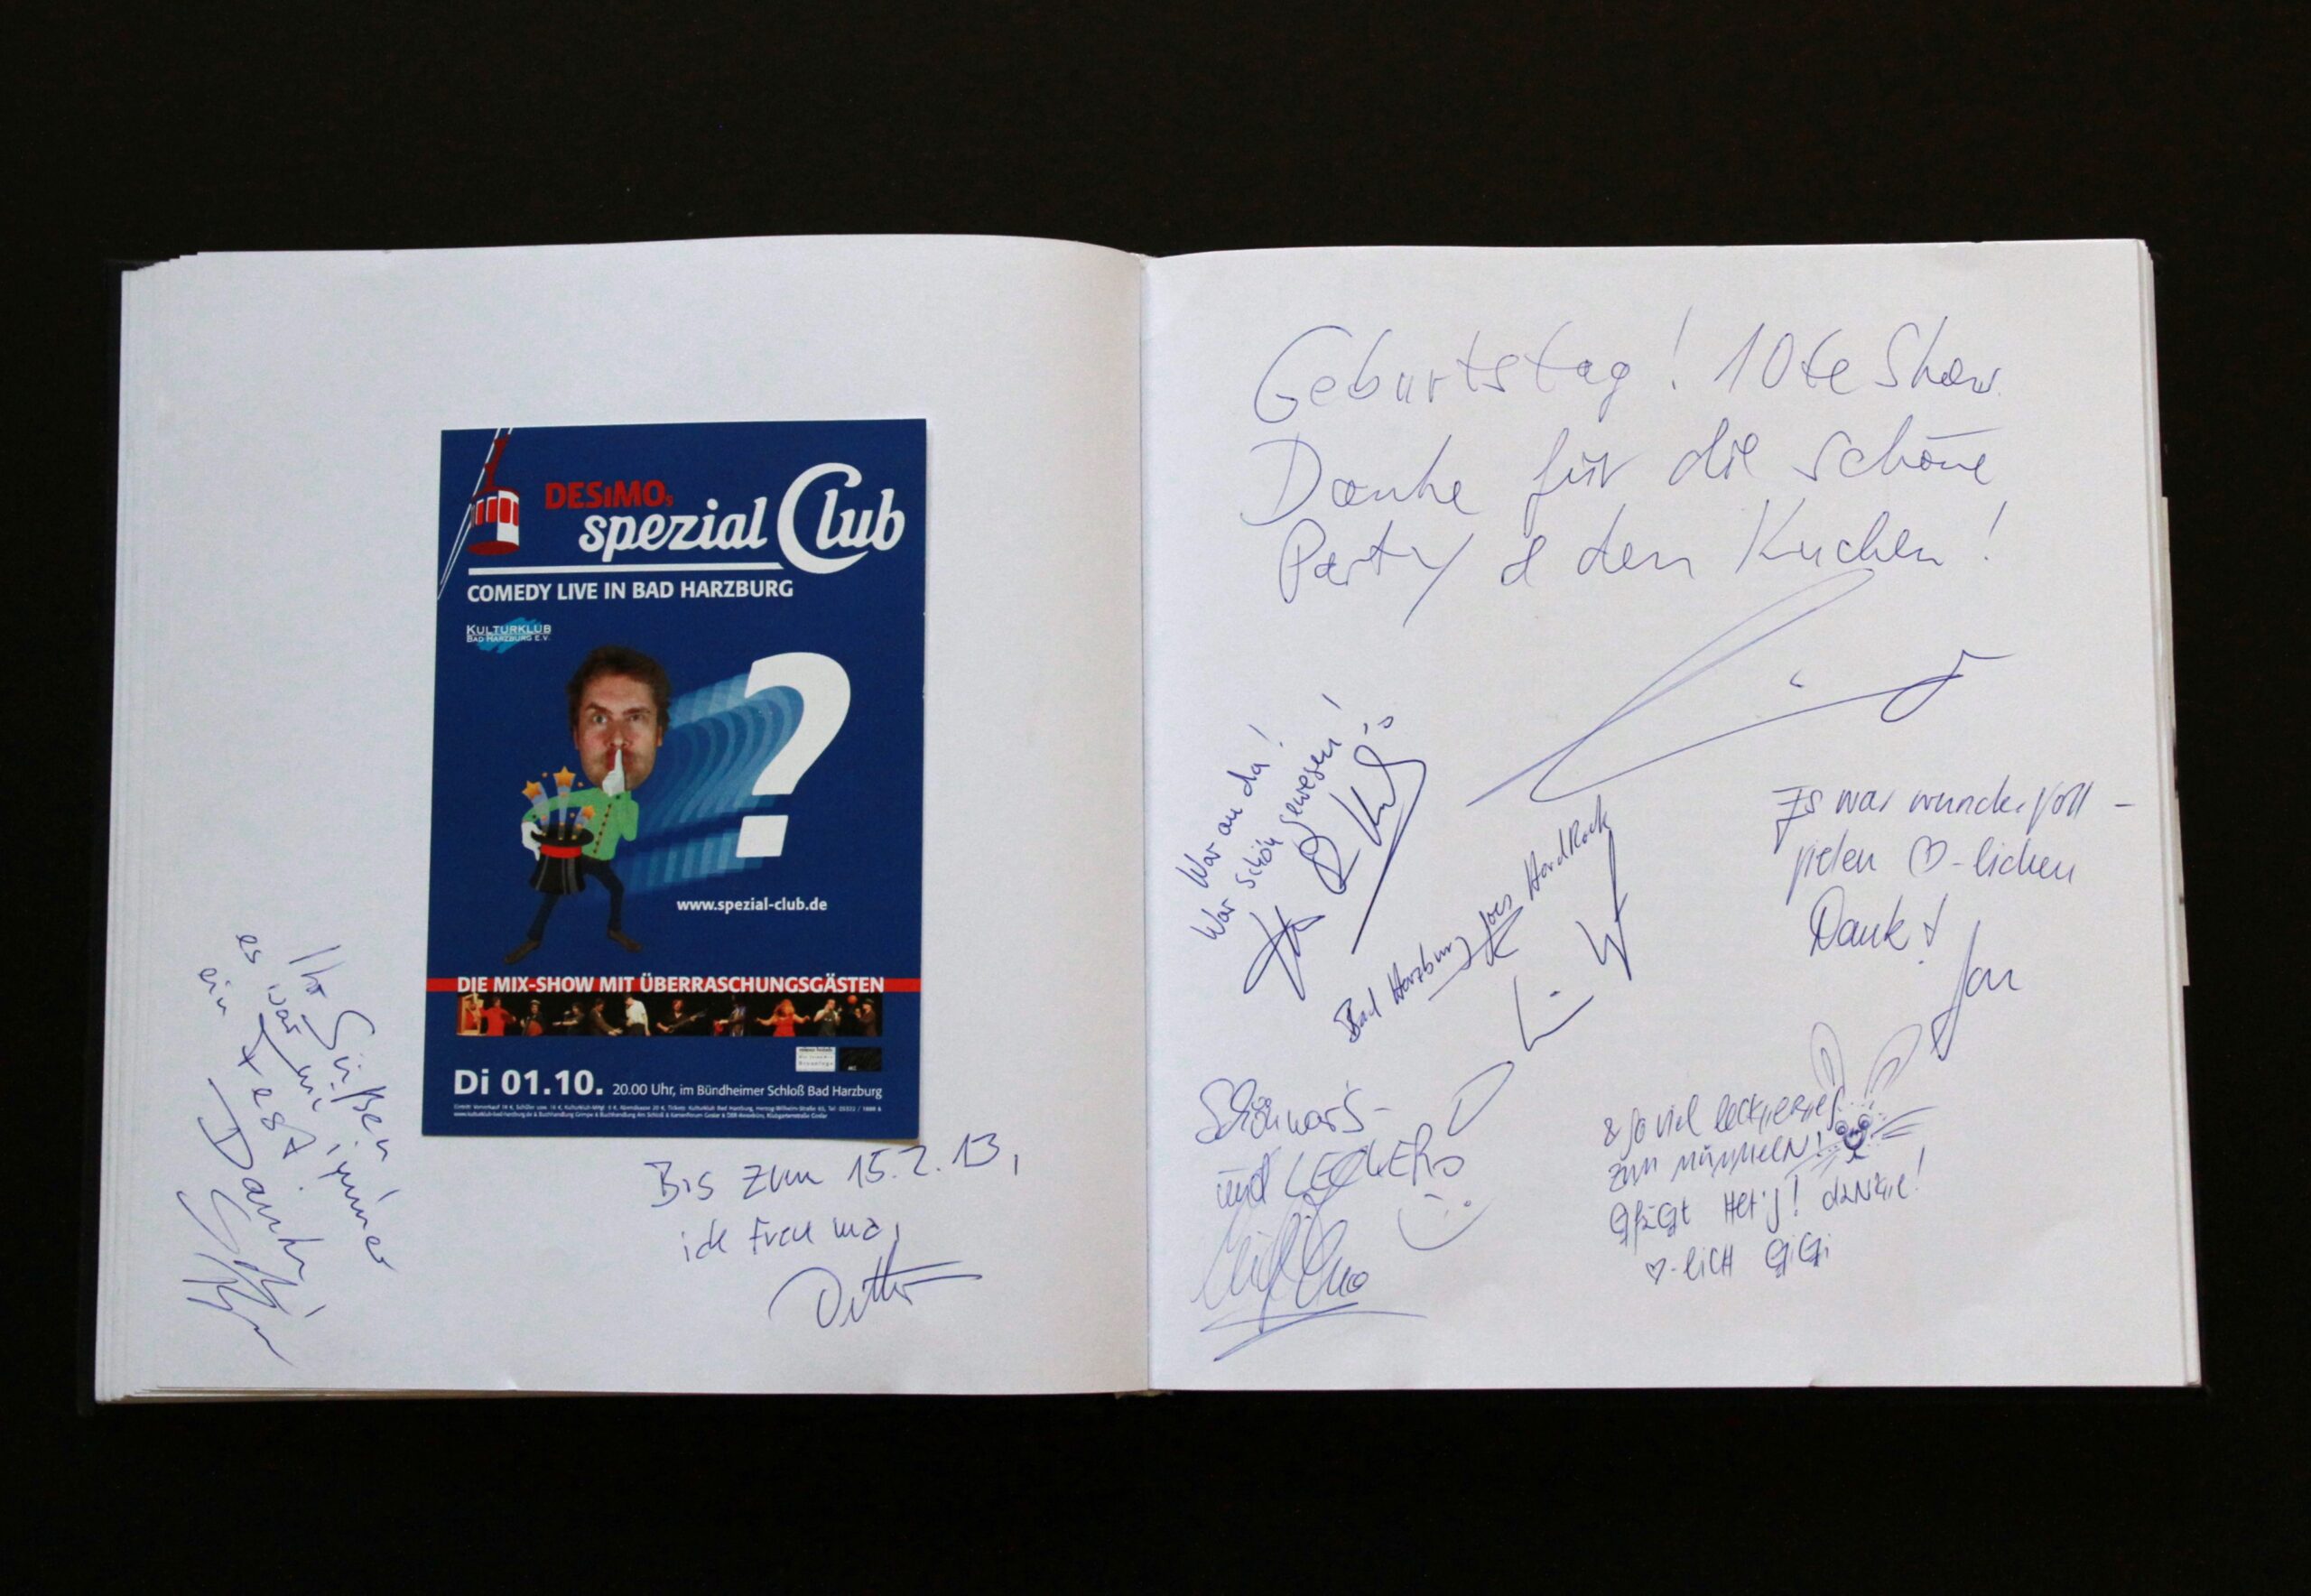 DESiMOs
spezial Club
COMEDY LIVE IN BAD HARZBURG
KULTURKLUB
BAD HARZBURG E.V.
?
www.spezial-club.de
DIE MIX-SHOW MIT ÜBERRASCHUNGSGÄSTEN
Di 01.10. 20.00 Uhr, im Bündheimer Schloß Bad Harzburg
Ihr Süßen
es war wie immer
ein Fest
Danke
Bis zum 15.2.13,
ich freu ma,
Geburtstag! 10te Show
Danke für die schöne
Party & den Kuchen!
War au da!
War schön gewesen!
Bad Harzburg goes HardRock
Es war wundervoll -
vielen ♡-lichen
Dank!
Jan
Schön war's -
und LECKER
& so viel leckeres
zum mümmeln!
Gfägt het's! dANKE!
♡-licH GiGi